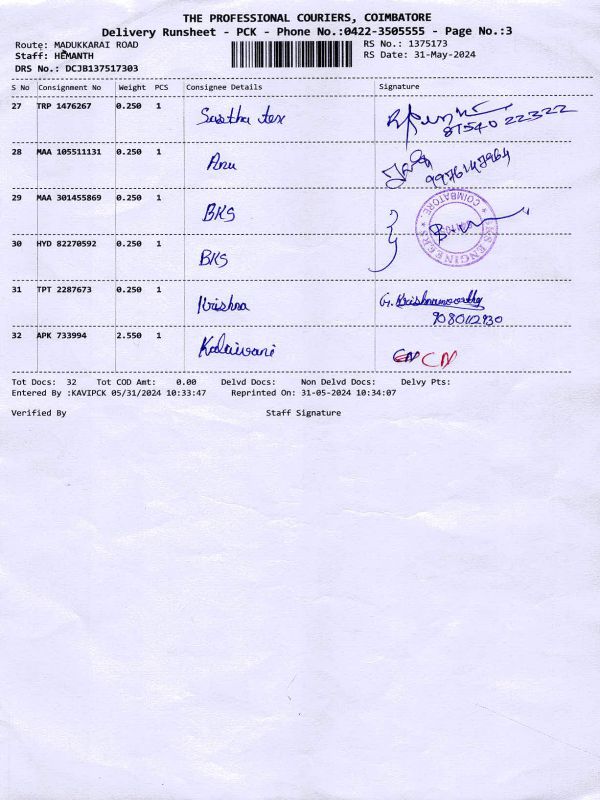 THE PROFESSIONAL COURIERS, COIMBATORE
Delivery Runsheet - PCK - Phone No.:0422-3505555 - Page No.:3
Route: MADUKKARAI ROAD RS No.: 1375173
Staff: HEMANTH RS Date: 31-May-2024
DRS No.: DCJB137517303
S No Consignment No Weight PCS Consignee Details Signature
27 TRP 1476267 0.250 1 Sastha tex 87540 22322
28 MAA 105511131 0.250 1 Anu 9976147964
29 MAA 301455869 0.250 1 BKS
COIMBATORE
KS ENGINEERS
30 HYD 82270592 0.250 1 BKS
31 TPT 2287673 0.250 1 Krishna G. Krishnamoorthy
32 APK 733994 2.550 1 Kalaivani CN
Tot Docs: 32 Tot COD Amt: 0.00 Delvd Docs: Non Delvd Docs: Delvy Pts:
Entered By :KAVIPCK 05/31/2024 10:33:47 Reprinted On: 31-05-2024 10:34:07
Verified By Staff Signature